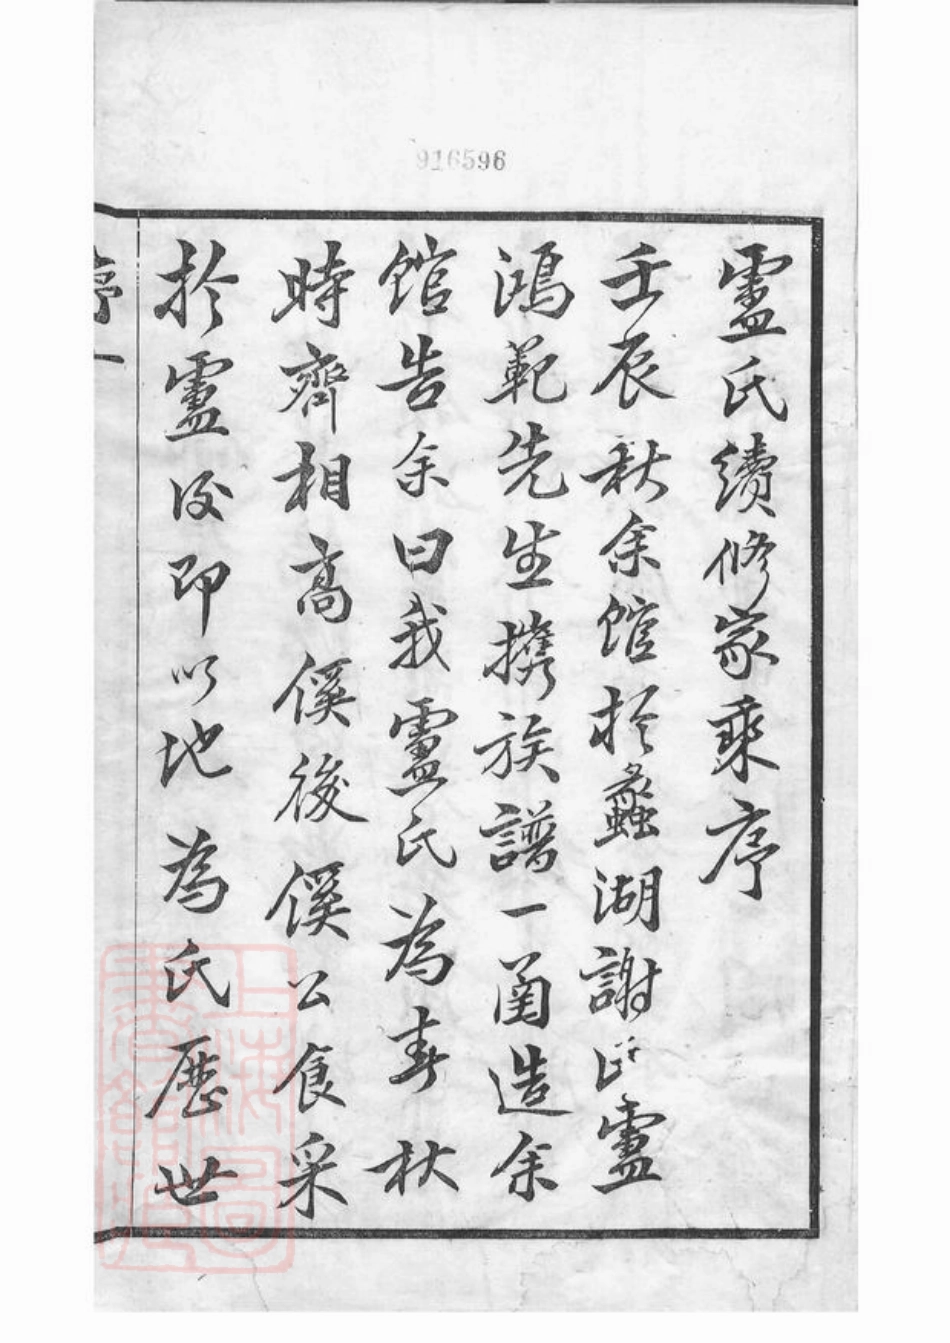 916596
盧氏續修家乘序
壬辰秋余館於蠡湖謝氏盧
鴻範先生攜族譜一圅造余
館告余曰我盧氏為春秋
時齊相高傒後傒公食采
於盧後即以地為氏歷世
序一
上海圖書館藏